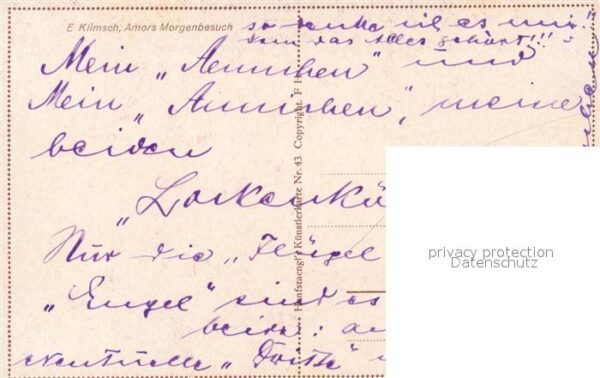 E. Klimsch, Amors Morgenbesuch
so denke ich es mir!!
dem das Alles gehört!!!
Mein „Aennchen" und
Mein „Annichen", meine
beiden
„Lockenkö
Nur die „Flügel
„Engel" sind es
beide: an
eventuelle „Dritte"
Hanfstaengl's Künstlerkarte Nr. 43 Copyright. F H
privacy protection
Datenschutz